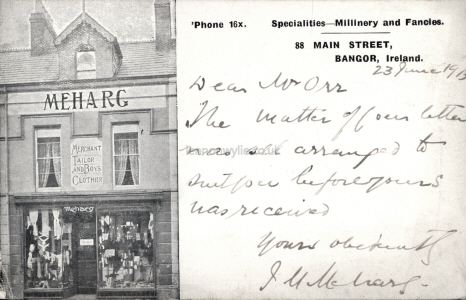 'Phone 16x. Specialities—Millinery and Fancies.
88 MAIN STREET,
BANGOR, Ireland.
23 June 191
Dear Mr Orr
The matter of your letter
was arranged to
suit you before yours
was received
Yours obediently
J M Meharg
MEHARG
MERCHANT
TAILOR
AND BOYS
CLOTHIER
Meharg